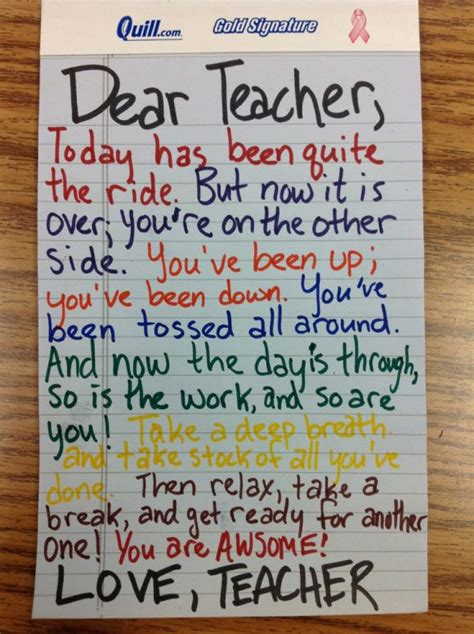 Quill.com Gold Signature
Dear Teacher,
Today has been quite
the ride. But now it is
over; you're on the other
side. You've been up;
you've been down. You've
been tossed all around.
And now the day is through,
so is the work, and so are
you! Take a deep breath
and take stock of all you've
done. Then relax, take a
break, and get ready for another
one! You are AWSOME!
LOVE, TEACHER